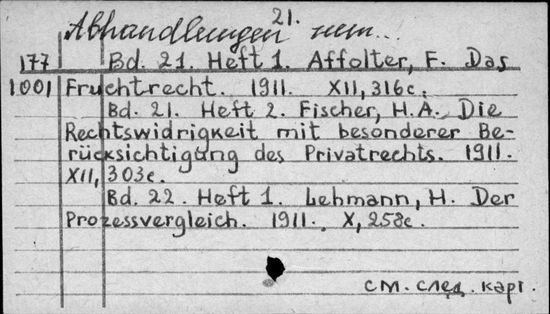 21.
Abhandlungen zum...
177 Bd. 21. Heft 1. Affolter, F. Das
1001 Fruchtrecht. 1911. XII, 316c.
Bd. 21. Heft 2. Fischer, H.A. Die
Rechtswidrigkeit mit besonderer Be-
rücksichtigung des Privatrechts. 1911.
XII, 303c.
Bd. 22. Heft 1. Lehmann, H. Der
Prozessvergleich. 1911. X, 258c.
см. след. карт.